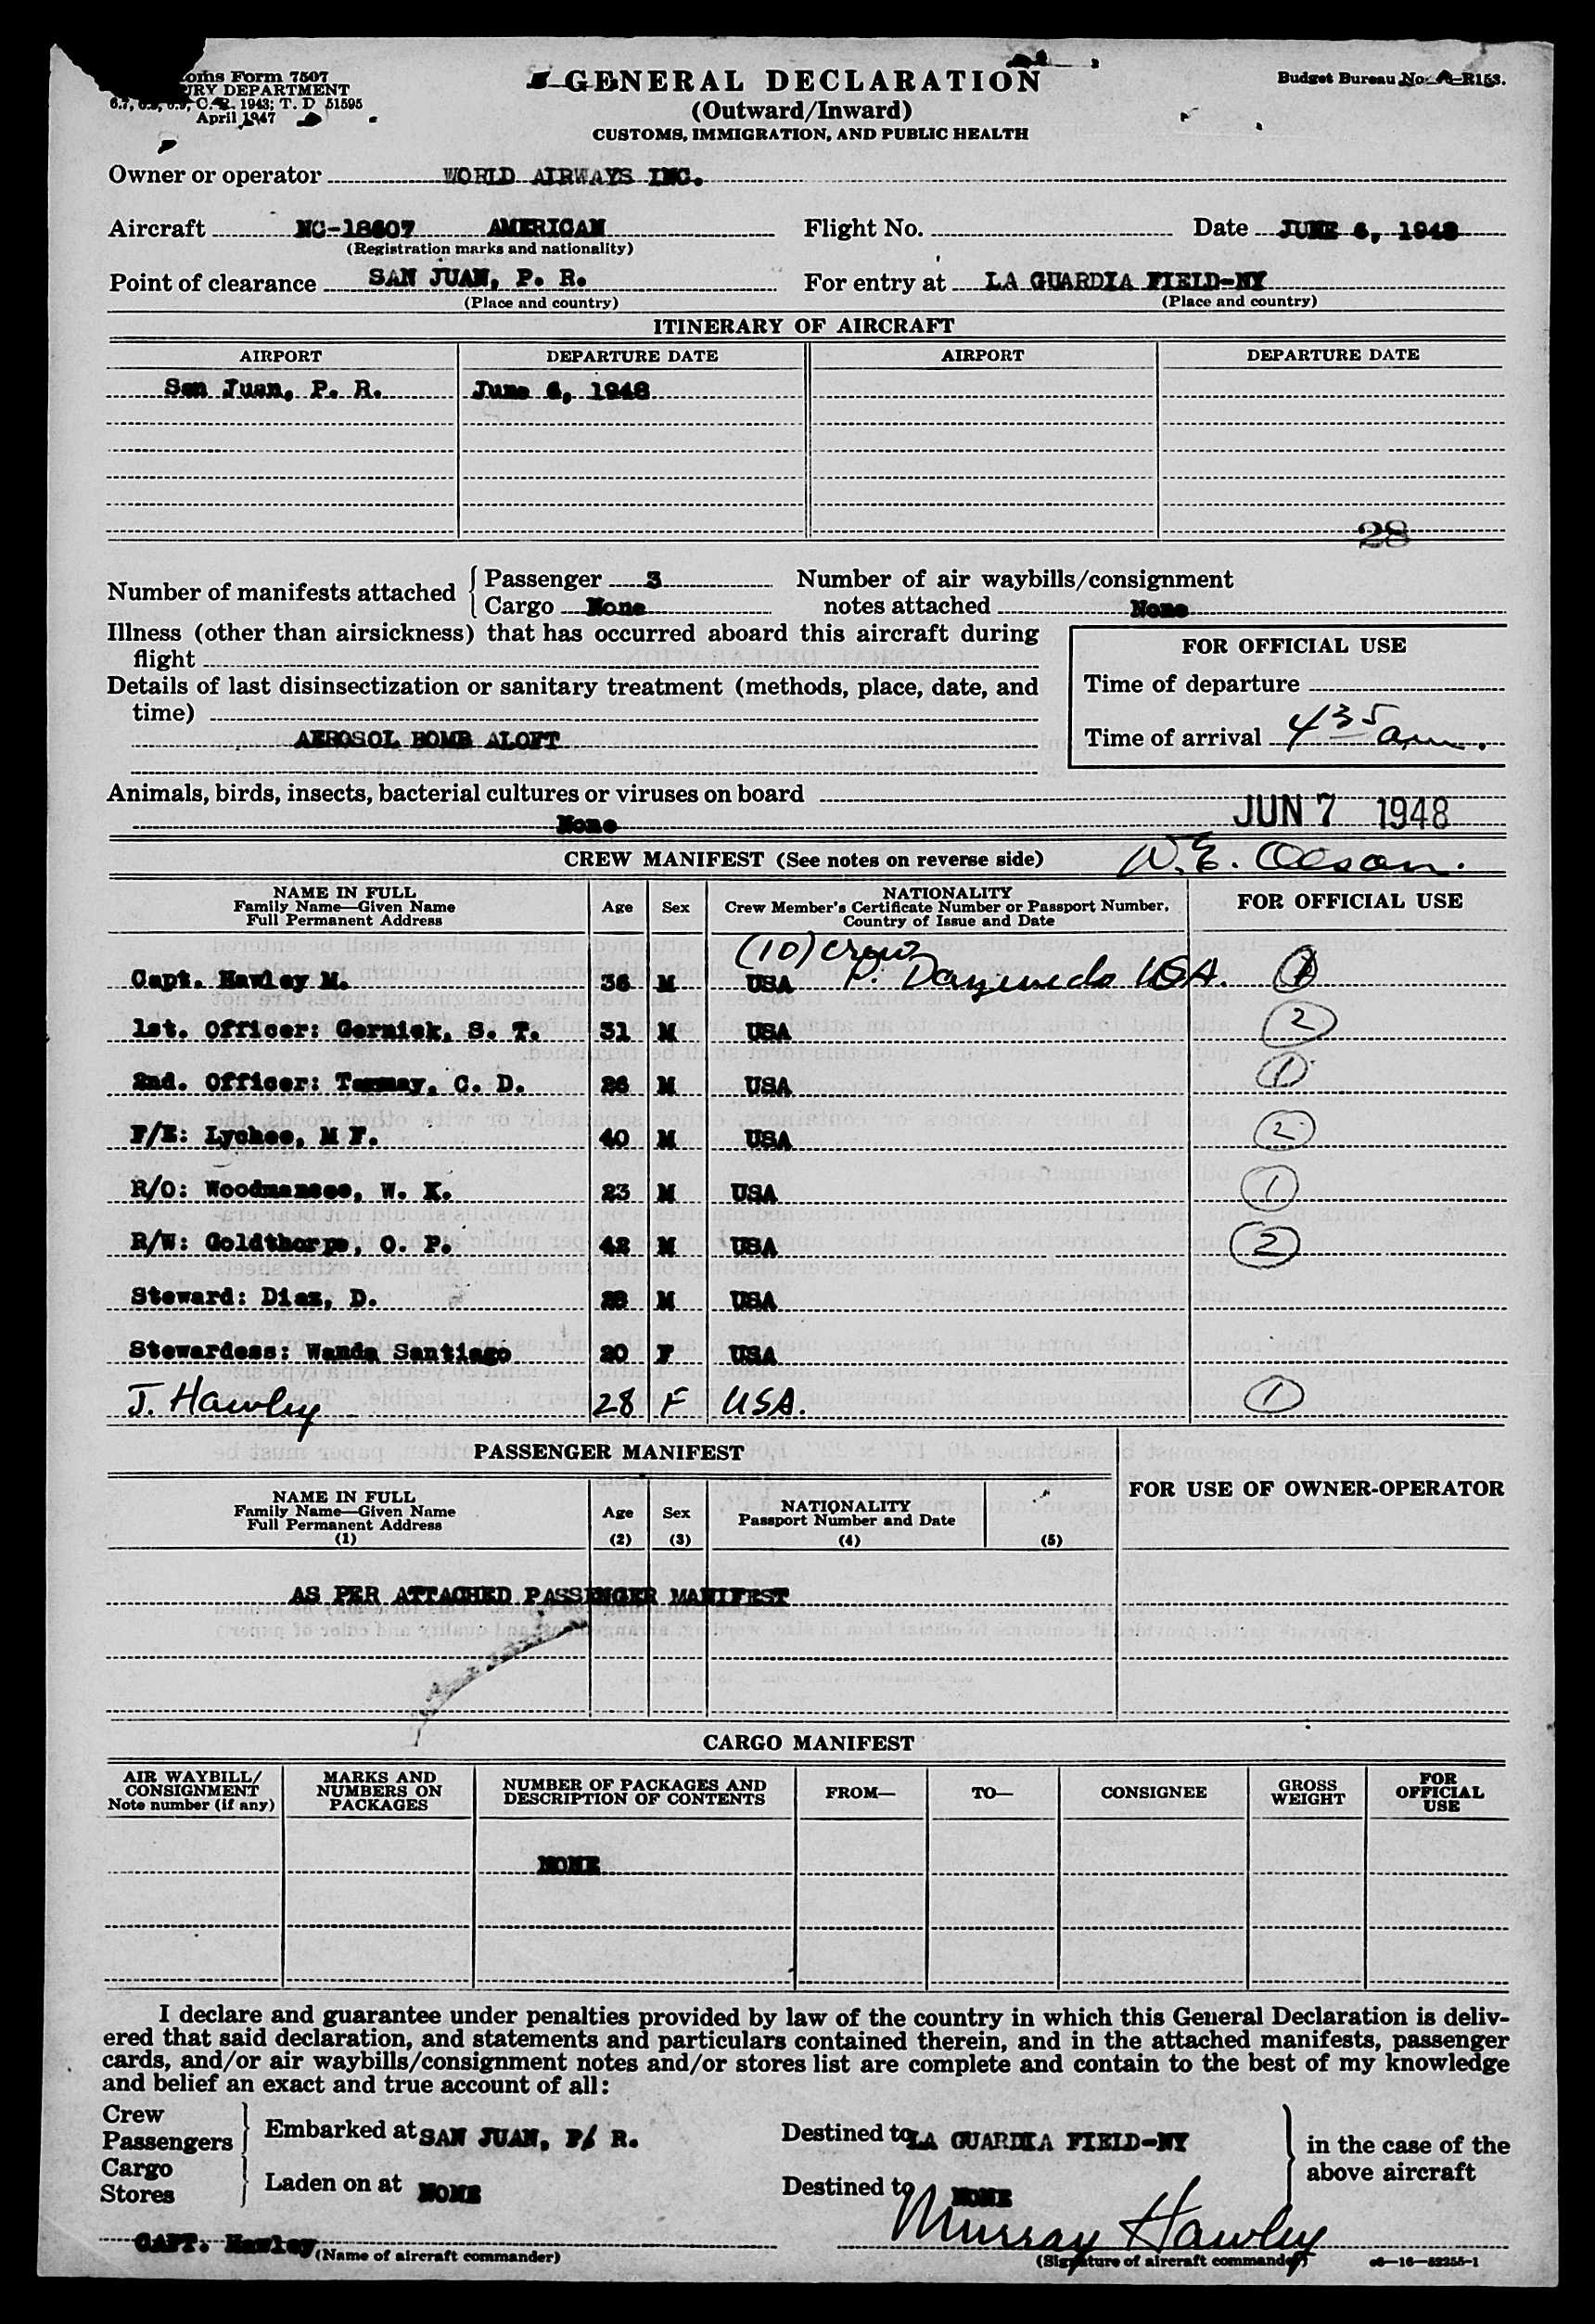 oms Form 7507
RY DEPARTMENT
C. R. 1943; T. D 51595
April 1947
GENERAL DECLARATION
(Outward/Inward)
CUSTOMS, IMMIGRATION, AND PUBLIC HEALTH
Budget Bureau No. R153.
Owner or operator WORLD AIRWAYS INC.
Aircraft NC-18607 AMERICAN Flight No. Date JUNE 6, 1948
(Registration marks and nationality)
Point of clearance SAN JUAN, P. R. For entry at LA GUARDIA FIELD-NY
(Place and country) (Place and country)
ITINERARY OF AIRCRAFT
AIRPORT DEPARTURE DATE AIRPORT DEPARTURE DATE
San Juan, P. R. June 6, 1948
28
Number of manifests attached Passenger 3 Number of air waybills/consignment
Cargo None notes attached None
Illness (other than airsickness) that has occurred aboard this aircraft during
flight
FOR OFFICIAL USE
Details of last disinsectization or sanitary treatment (methods, place, date, and
time)
Time of departure
AEROSOL BOMB ALOFT
Time of arrival 435 am.
Animals, birds, insects, bacterial cultures or viruses on board
None
JUN 7 1948
CREW MANIFEST (See notes on reverse side) W. E. Olson.
NAME IN FULL
Family Name—Given Name
Full Permanent Address
Age Sex
NATIONALITY
Crew Member's Certificate Number or Passport Number,
Country of Issue and Date
FOR OFFICIAL USE
(10) crew
Capt. Hawley M. 36 M USA P. USA. 1
1st. Officer: Gernick, S. T. 31 M USA 2
2nd. Officer: C. D. 26 M USA 1
F/E: Lychee, M F. 40 M USA 2
R/O: Woodmansee, W. K. 23 M USA 1
R/W: Goldthorpe, O. P. 42 M USA 2
Steward: Diaz, D. M USA
Stewardess: Wanda Santiago 20 F USA
J. Hawley 28 F USA. 1
PASSENGER MANIFEST
FOR USE OF OWNER-OPERATOR
NAME IN FULL
Family Name—Given Name
Full Permanent Address
(1)
Age
(2)
Sex
(3)
NATIONALITY
Passport Number and Date
(4)
(5)
AS PER ATTACHED PASSENGER MANIFEST
CARGO MANIFEST
AIR WAYBILL/
CONSIGNMENT
Note number (if any)
MARKS AND
NUMBERS ON
PACKAGES
NUMBER OF PACKAGES AND
DESCRIPTION OF CONTENTS
FROM—
TO—
CONSIGNEE
GROSS
WEIGHT
FOR
OFFICIAL
USE
NONE
I declare and guarantee under penalties provided by law of the country in which this General Declaration is deliv-
ered that said declaration, and statements and particulars contained therein, and in the attached manifests, passenger
cards, and/or air waybills/consignment notes and/or stores list are complete and contain to the best of my knowledge
and belief an exact and true account of all:
Crew
Passengers
Embarked at SAN JUAN, P/ R. Destined to LA GUARDIA FIELD-NY
in the case of the
above aircraft
Cargo
Stores
Laden on at NONE Destined to NONE
CAPT. Hawley Murray Hawley
(Name of aircraft commander) (Signature of aircraft commander) 16—52255-1